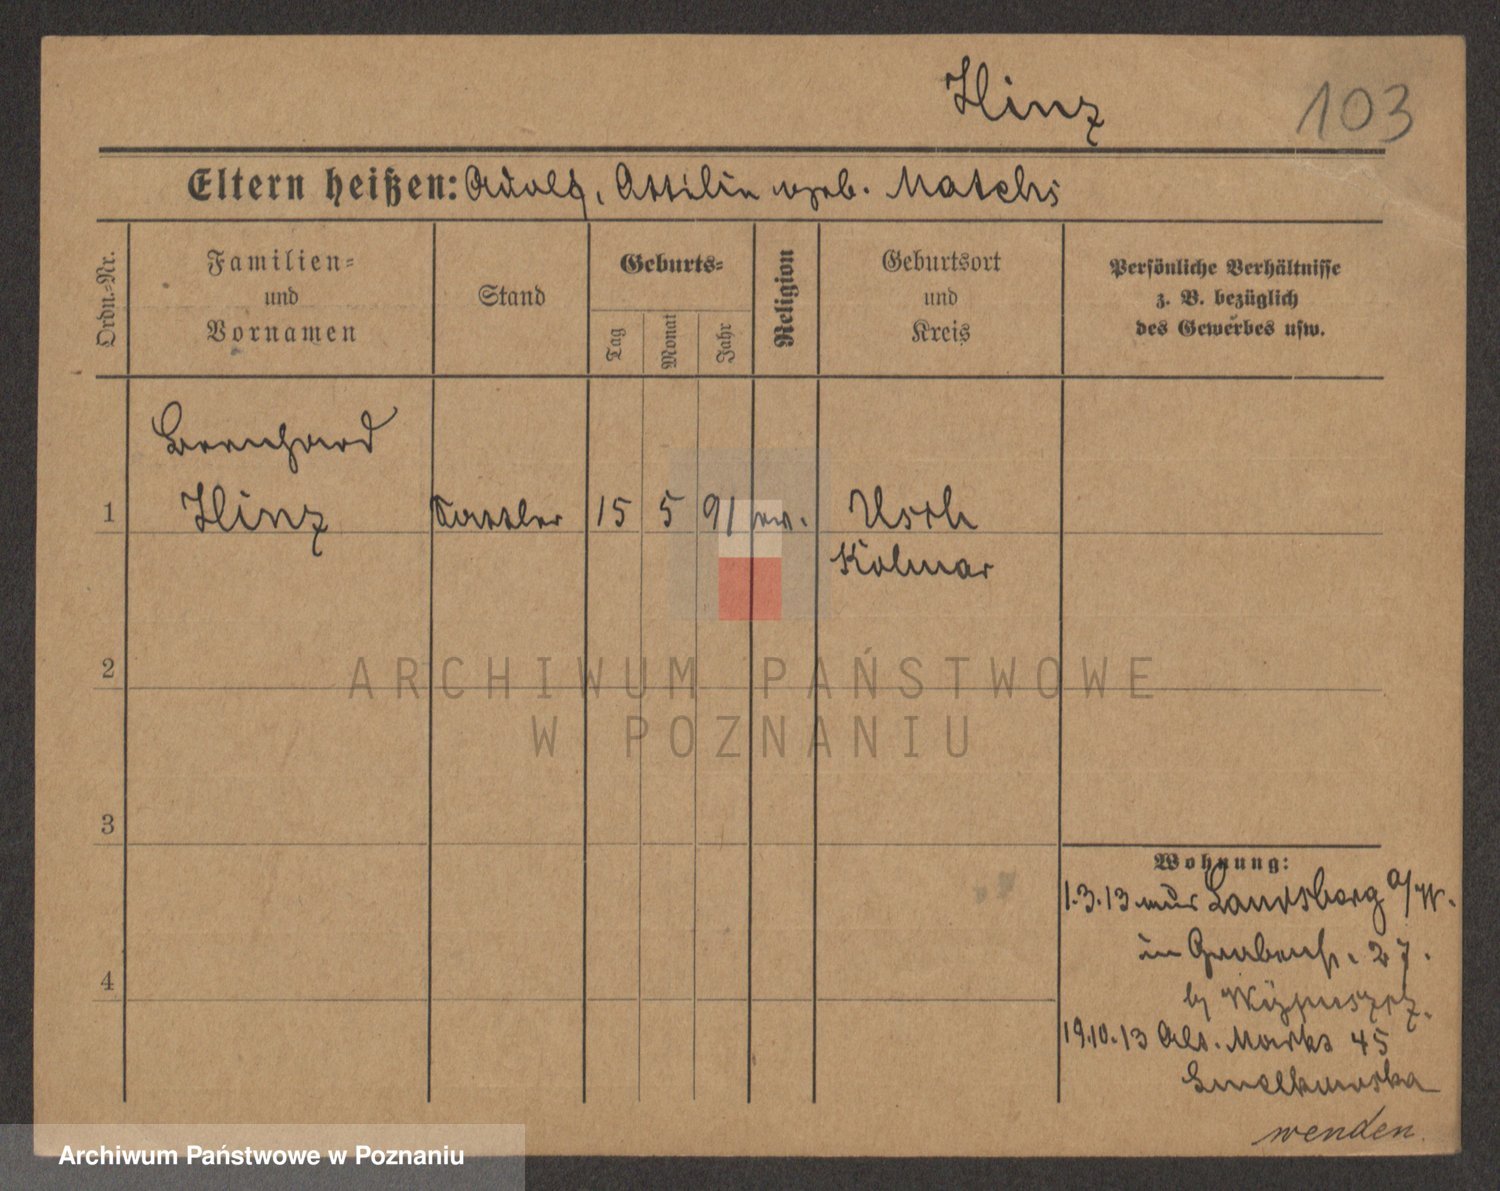 Hinz
103
Eltern heißen: Adolf, Ottilie geb. Matchs
Ordn.-Nr.
Familien-
und
Vornamen
Stand
Geburts-
Tag
Monat
Jahr
Religion
Geburtsort
und
Kreis
Persönliche Verhältnisse
z. B. bezüglich
des Gewerbes usw.
Bernhard
1 Hinz Sattler 15 5 91 ev. Usch
Kolmar
2
3
4
Wohnung:
1.3.13 aus Landsberg a/W.
in Grabenstr. 27.
by
19.10.13 Alt. Markt 45
wenden.
ARCHIWUM PAŃSTWOWE
W POZNANIU
Archiwum Państwowe w Poznaniu